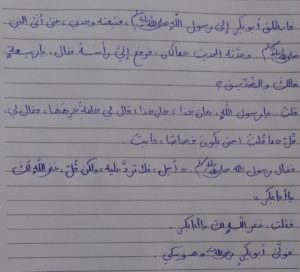 فانطلق أبو بكر إلى رسول اللّٰه ﷺ، فتبعته وحدي، حتى أتى النبي
ﷺ. فحدّثه الحديث كما كان، فرفع إليَّ رأسَهُ فقال: يا ربيعة،
مالك والصِّدِّيق؟
قلت: يا رسول اللّٰه، كان كذا، كان كذا، قال لي كلمةً كرهها، فقال لي:
قُلْ كما قُلتُ، حتى يكونَ قصاصًا، فأبيتُ.
فقال رسول اللّٰه ﷺ: «أجل، فلا تردَّ عليه، ولكن قُلْ: غفر اللّٰهُ لكَ
يا أبا بكر»
فقلت: غفر اللّٰهُ لكَ يا أبا بكر.
فولَّى أبو بكر وهو يبكي.